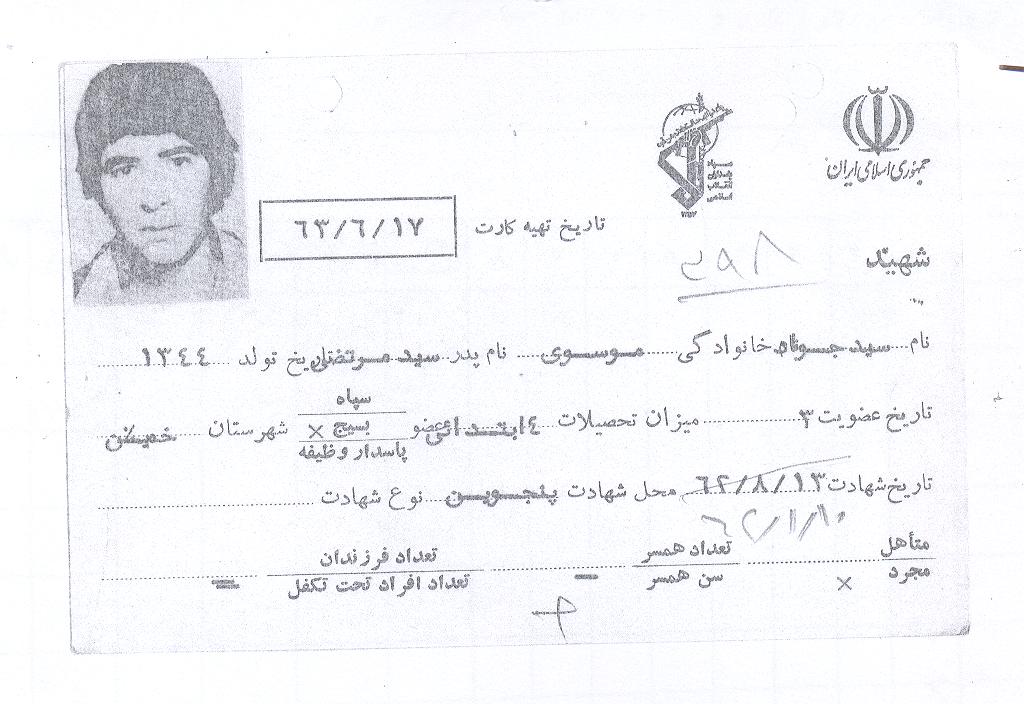 جمهوری اسلامی ایران
سپاه پاسداران انقلاب اسلامی
۱۳۵۷
تاریخ تهیه کارت ٦٣/٦/١٧
شهید
نام سید جواد خانوادگی موسوی نام پدر سید مرتضی تاریخ تولد ١٣٤٤
تاریخ عضویت ٣ میزان تحصیلات ٤ ابتدائی عضو سپاه بسیج × پاسدار وظیفه شهرستان خمین
تاریخ شهادت ٦٢/٨/١٣ محل شهادت پنجوین نوع شهادت
متأهل مجرد × تعداد همسر سن همسر — تعداد فرزندان تعداد افراد تحت تکفل —